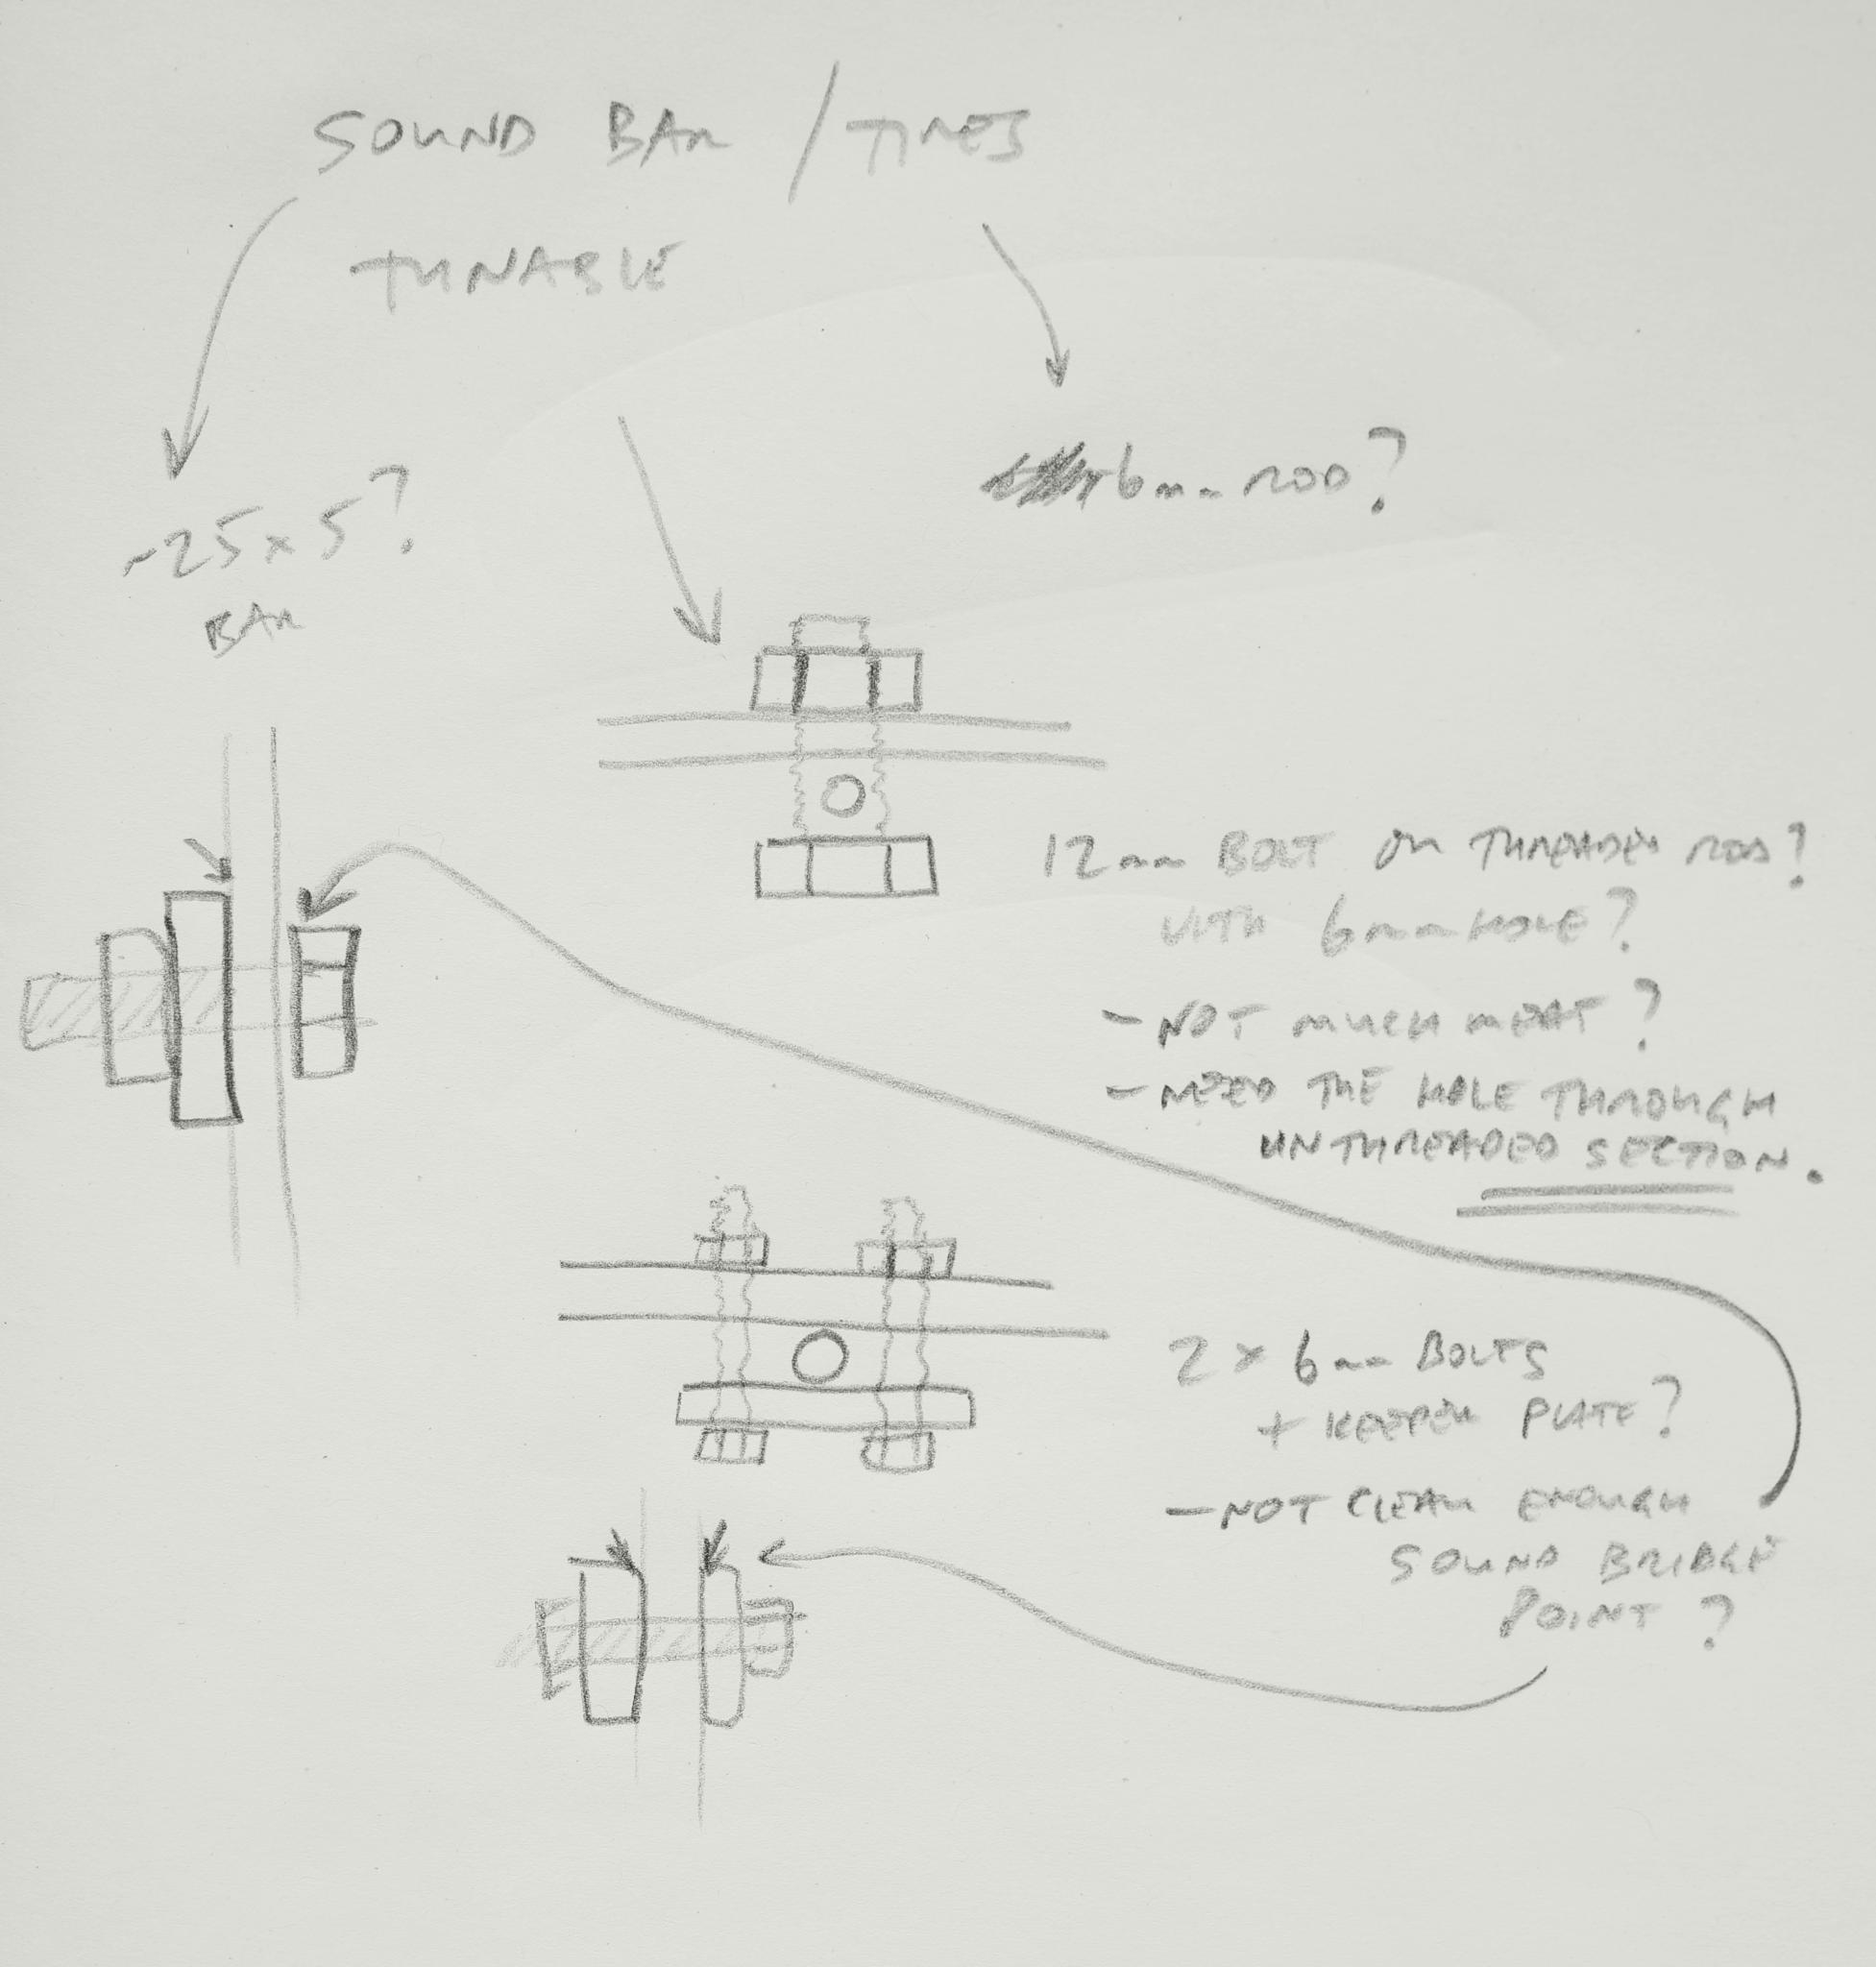 SOUND BAR / TINES
TUNABLE
~25 x 5?
BAR
6mm ROD?
12mm BOLT OR THREADED ROD?
WITH 6mm HOLE?
- NOT MUCH MEAT?
- NEED THE HOLE THROUGH
UNTHREADED SECTION.
2 x 6mm BOLTS
+ KEEPER PLATE?
- NOT CLEAN ENOUGH
SOUND BRIDGE
POINT?